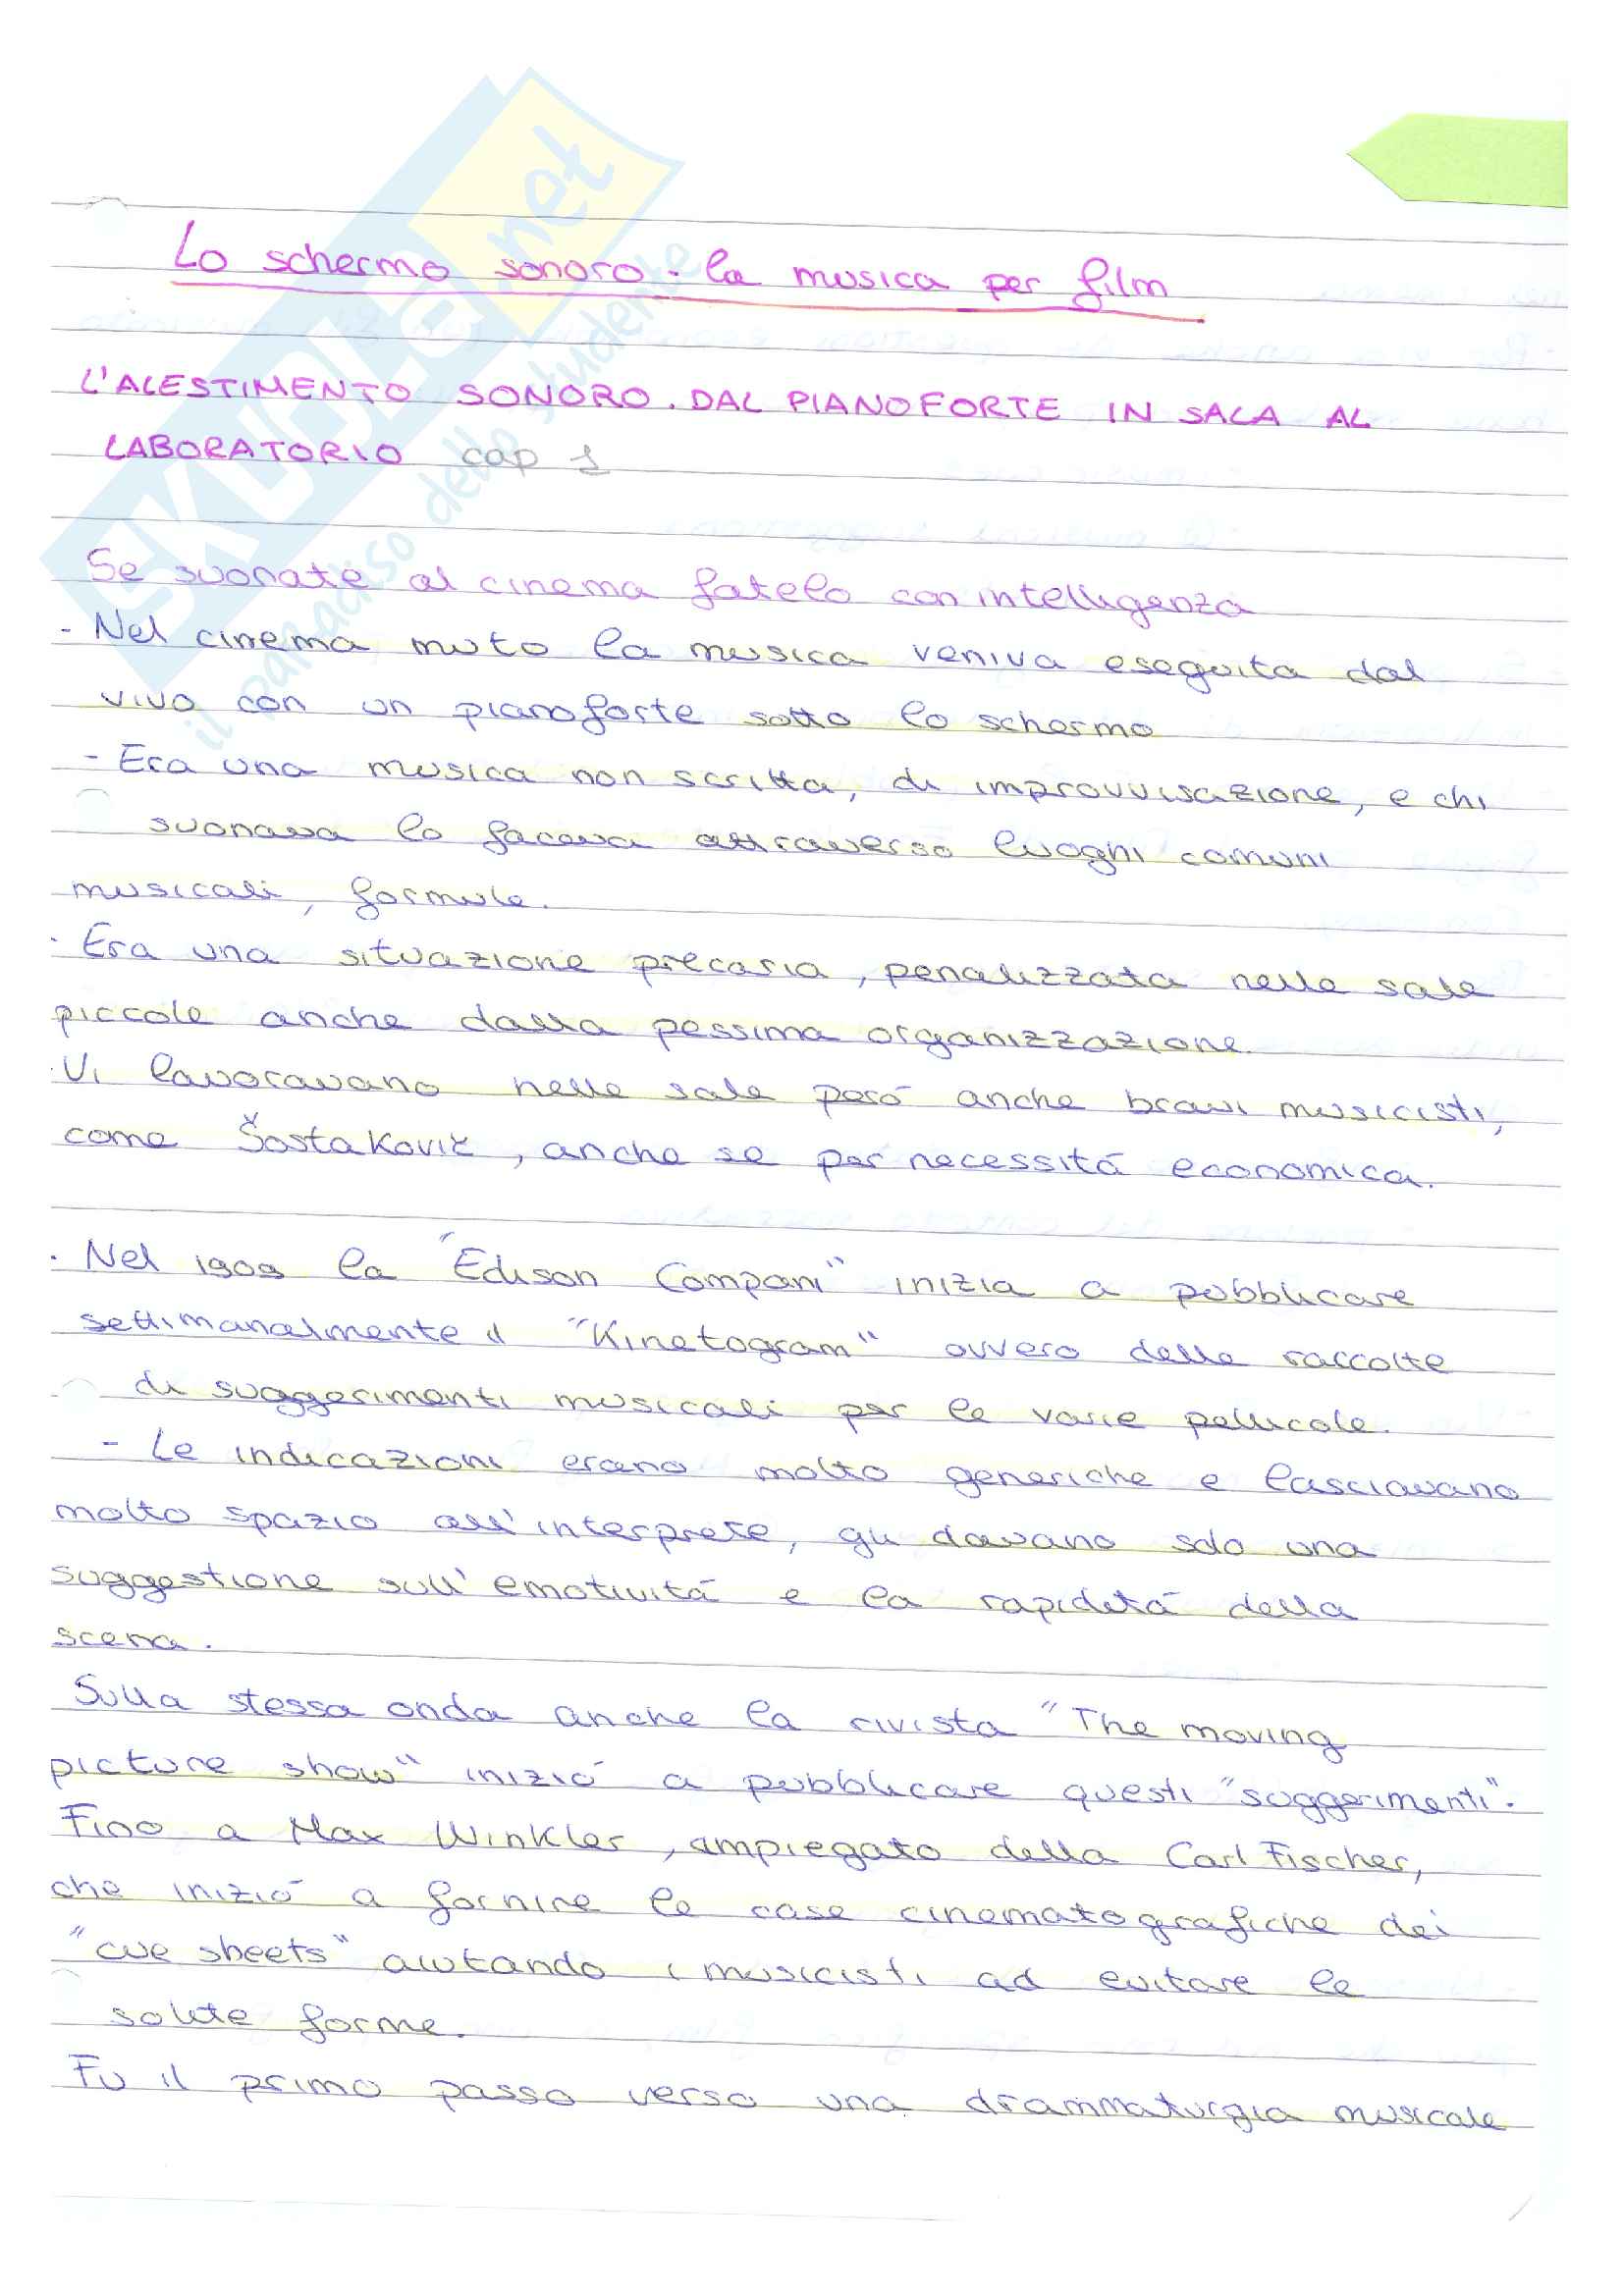 SKUOLA.net
il paradiso dello studente
Lo schermo sonoro - la musica per film
L'ALESTIMENTO SONORO. DAL PIANOFORTE IN SALA AL
LABORATORIO cap 1
Se suonate al cinema fatelo con intelligenza
- Nel cinema muto la musica veniva eseguita dal
vivo con un pianoforte sotto lo schermo
- Era una musica non scritta, di improvvisazione, e chi
suonava lo faceva attraverso luoghi comuni
musicali, formule.
- Era una situazione precaria, penalizzata nelle sale
piccole anche dalla pessima organizzazione.
- Vi lavoravano nelle sale però anche bravi musicisti,
come Šostakovič, anche se per necessità economica.
- Nel 1909 la "Edison Compani" inizia a pubblicare
settimanalmente il "Kinetogram" ovvero delle raccolte
di suggerimenti musicali per le varie pellicole.
- Le indicazioni erano molto generiche e lasciavano
molto spazio all'interprete, gli davano solo una
suggestione sull'emotività e la rapidità della
scena.
Sulla stessa onda anche la rivista "The moving
picture show" iniziò a pubblicare questi "suggerimenti".
Fino a Max Winkler, impiegato della Carl Fischer,
che iniziò a fornire le case cinematografiche dei
"cue sheets" aiutando i musicisti ad evitare le
solite forme.
Fu il primo passo verso una drammaturgia musicale